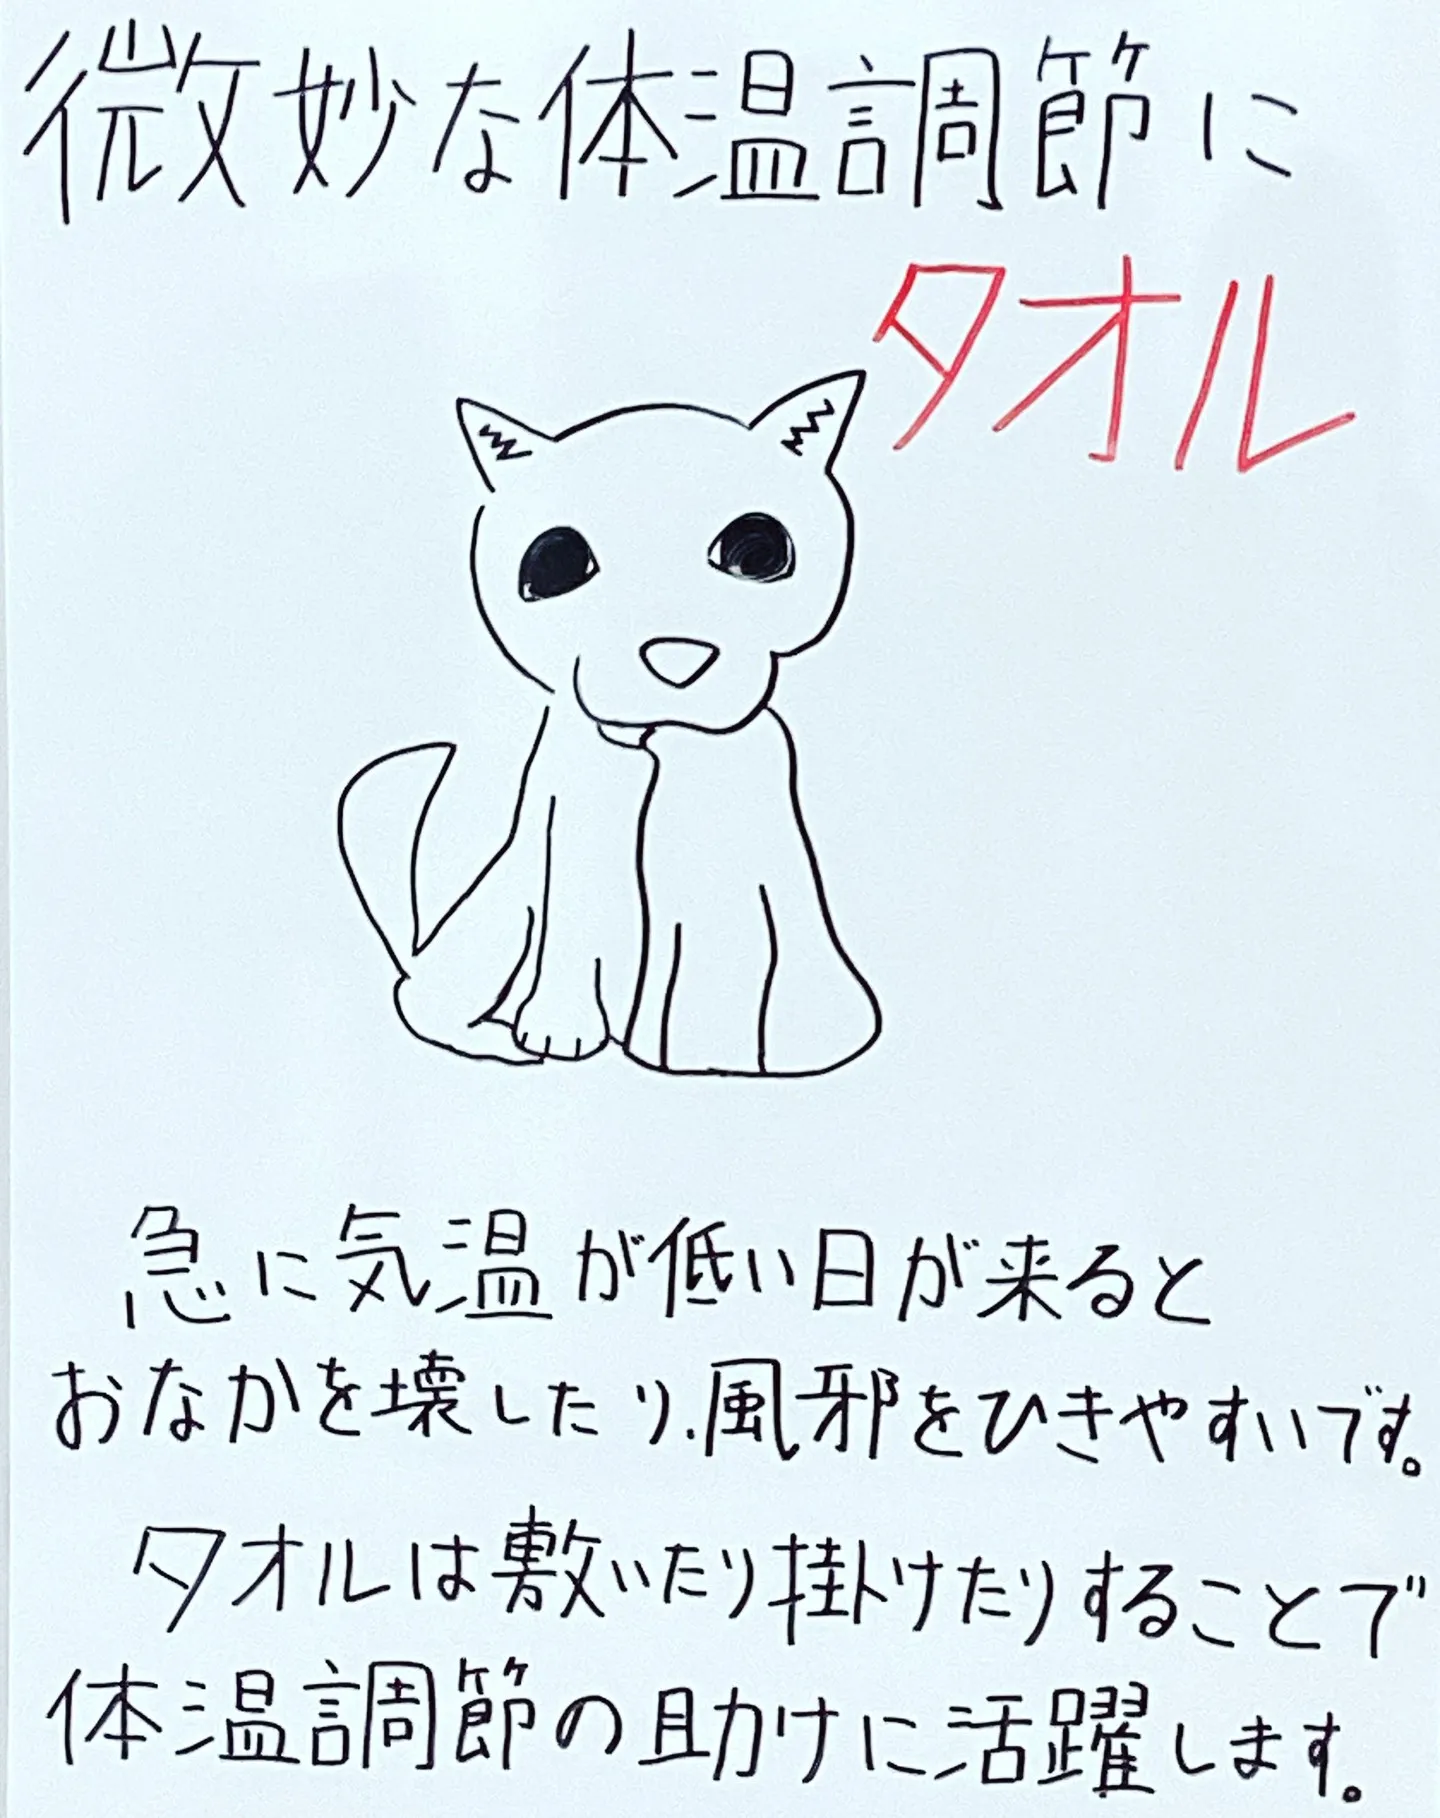 微妙な体温調節に
タオル
急に気温が低い日が来ると
おなかを壊したり、風邪をひきやすいです。
タオルは敷いたり掛けたりすることで
体温調節の助けに活躍します。